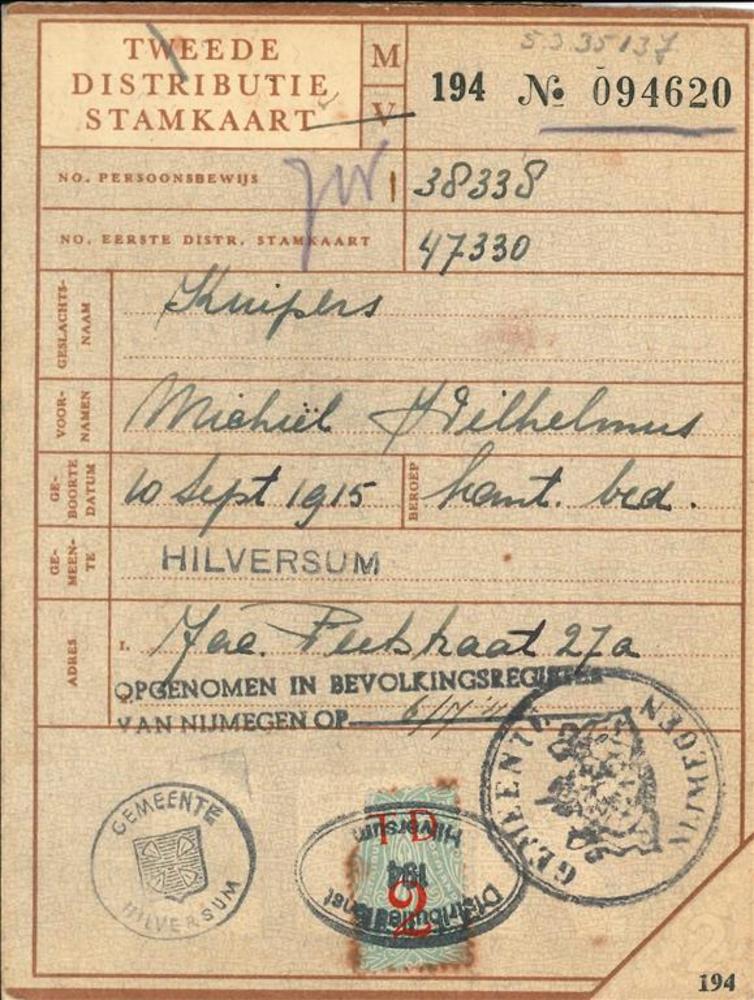 5335137
TWEEDE
DISTRIBUTIE
STAMKAART
M
V
194 № 094620
NO. PERSOONSBEWIJS
38338
NO. EERSTE DISTR. STAMKAART
47330
GESLACHTS-
NAAM
Kuipers
VOOR-
NAMEN
Michiël Wilhelmus
GE-
BOORTE
DATUM
10 Sept 1915
BEROEP
kant. bed.
GE-
MEEN-
TE
HILVERSUM
ADRES
1.
Jac. 27a
OPGENOMEN IN BEVOLKINGSREGISTER
VAN NIJMEGEN OP
GEMEENTE NIJMEGEN
GEMEENTE
HILVERSUM
TD
2
Distributiedienst
194
Hilversum
194